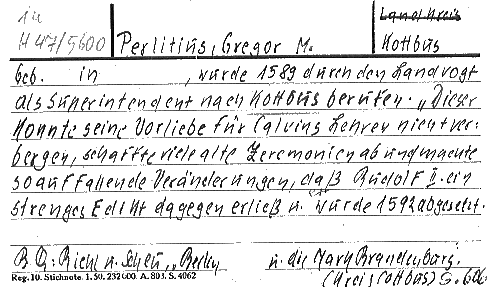 in
H 47/5600
Perlitius, Gregor M.
Landkreis
Kottbus
geb. in , wurde 1589 durch den Landvogt
als Superintendent nach Kottbus berufen. „Dieser
konnte seine Vorliebe für Calvins Lehren nicht ver-
bergen, schaffte viele alte Zeremonien ab und machte
so auffallende Veränderungen, daß Rudolf II. ein
strenges Edikt dagegen erließ u. wurde 1592 abgesetzt.
B.Q.: Riehl u. Scheu, „Berlin u. die Mark Brandenburg.
Reg. 10. Stichnote. 1. 50. 232000. A. 803. S. 4062
(Kreis Cottbus) S. 606